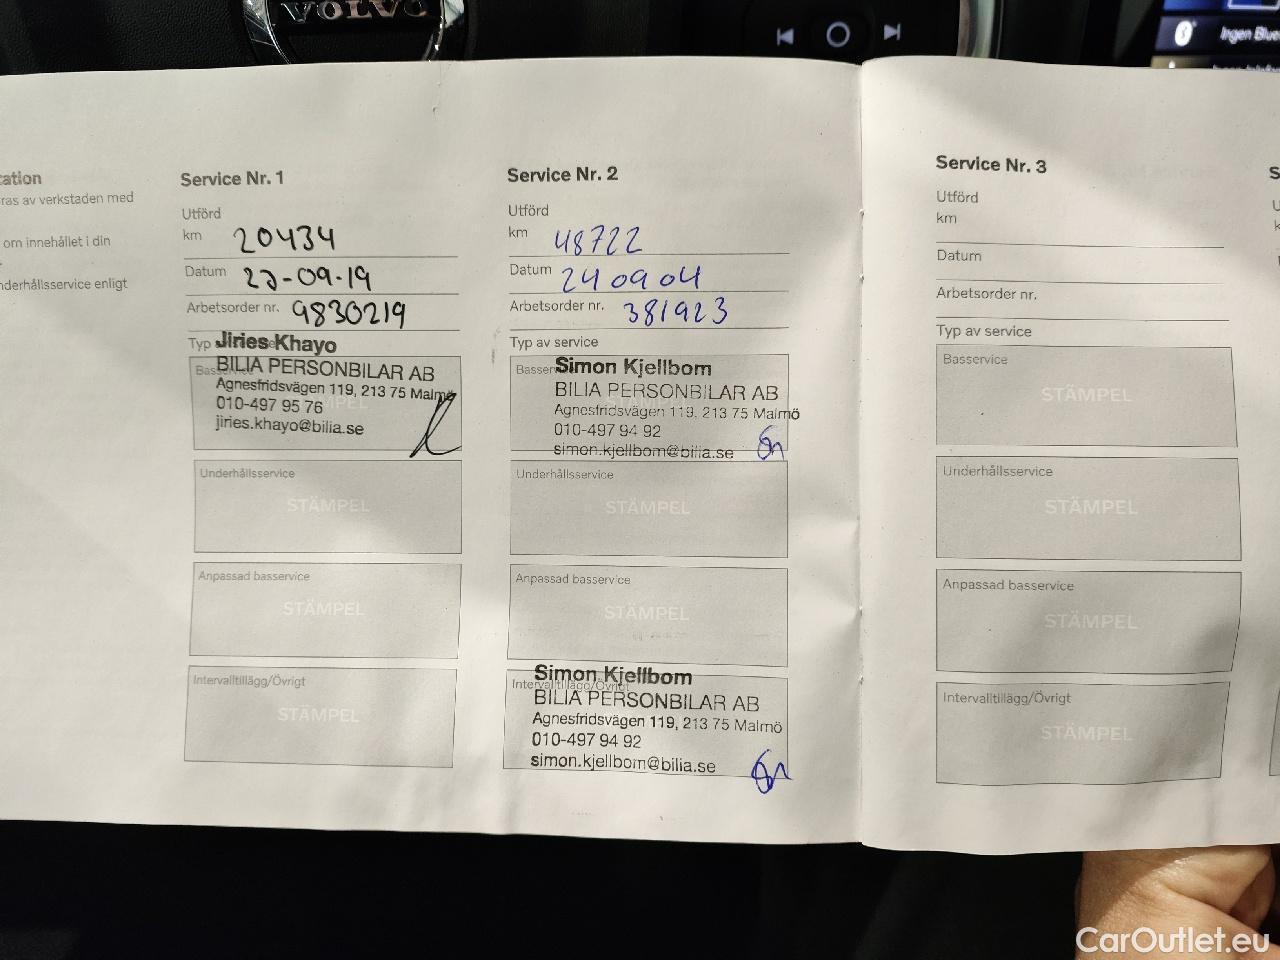 VOLVO
Ingen Blue
ation
ras av verkstaden med
om innehållet i din
nderhållsservice enligt
Service Nr. 1
Utförd
km 20434
Datum 22-09-19
Arbetsorder nr. 9830219
Typ
Jiries Khayo
BILIA PERSONBILAR AB
Agnesfridsvägen 119, 213 75 Malmö
010-497 95 76
jiries.khayo@bilia.se
Underhållsservice
STÄMPEL
Anpassad basservice
STÄMPEL
Intervalltillägg/Övrigt
STÄMPEL
Service Nr. 2
Utförd
km 48722
Datum 24 09 04
Arbetsorder nr. 381923
Typ av service
Basser
Simon Kjellbom
BILIA PERSONBILAR AB
Agnesfridsvägen 119, 213 75 Malmö
010-497 94 92
simon.kjellbom@bilia.se
Underhållsservice
STÄMPEL
Anpassad basservice
STÄMPEL
Intervalltillägg/Övrigt
Simon Kjellbom
BILIA PERSONBILAR AB
Agnesfridsvägen 119, 213 75 Malmö
010-497 94 92
simon.kjellbom@bilia.se
Service Nr. 3
Utförd
km
Datum
Arbetsorder nr.
Typ av service
Basservice
STÄMPEL
Underhållsservice
STÄMPEL
Anpassad basservice
STÄMPEL
Intervalltillägg/Övrigt
STÄMPEL
CarOutlet.eu